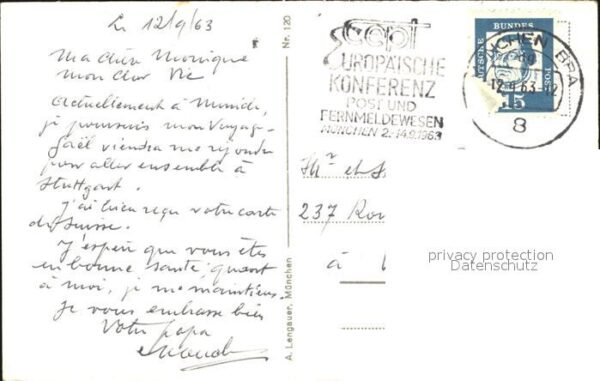 Le 12/9/63
Ma chère Monique
mon cher Vic
Actuellement à Munich,
je poursuis mon voyage
Gaël viendra me rejoindre
pour aller ensemble à
Stuttgart.
J'ai bien reçu votre carte
de Suisse.
J'espère que vous êtes
en bonne santé; quant
à moi, je me maintiens.
Je vous embrasse bien
Votre papa
Nr. 120
A. Lengauer, München
cept
EUROPÄISCHE
KONFERENZ
POST UND
FERNMELDEWESEN
MÜNCHEN 2.-14.9.1963
DEUTSCHE BUNDESPOST
15
MÜNCHEN BPA
12.9.63-12
8
Mr et
237
à
privacy protection
Datenschutz